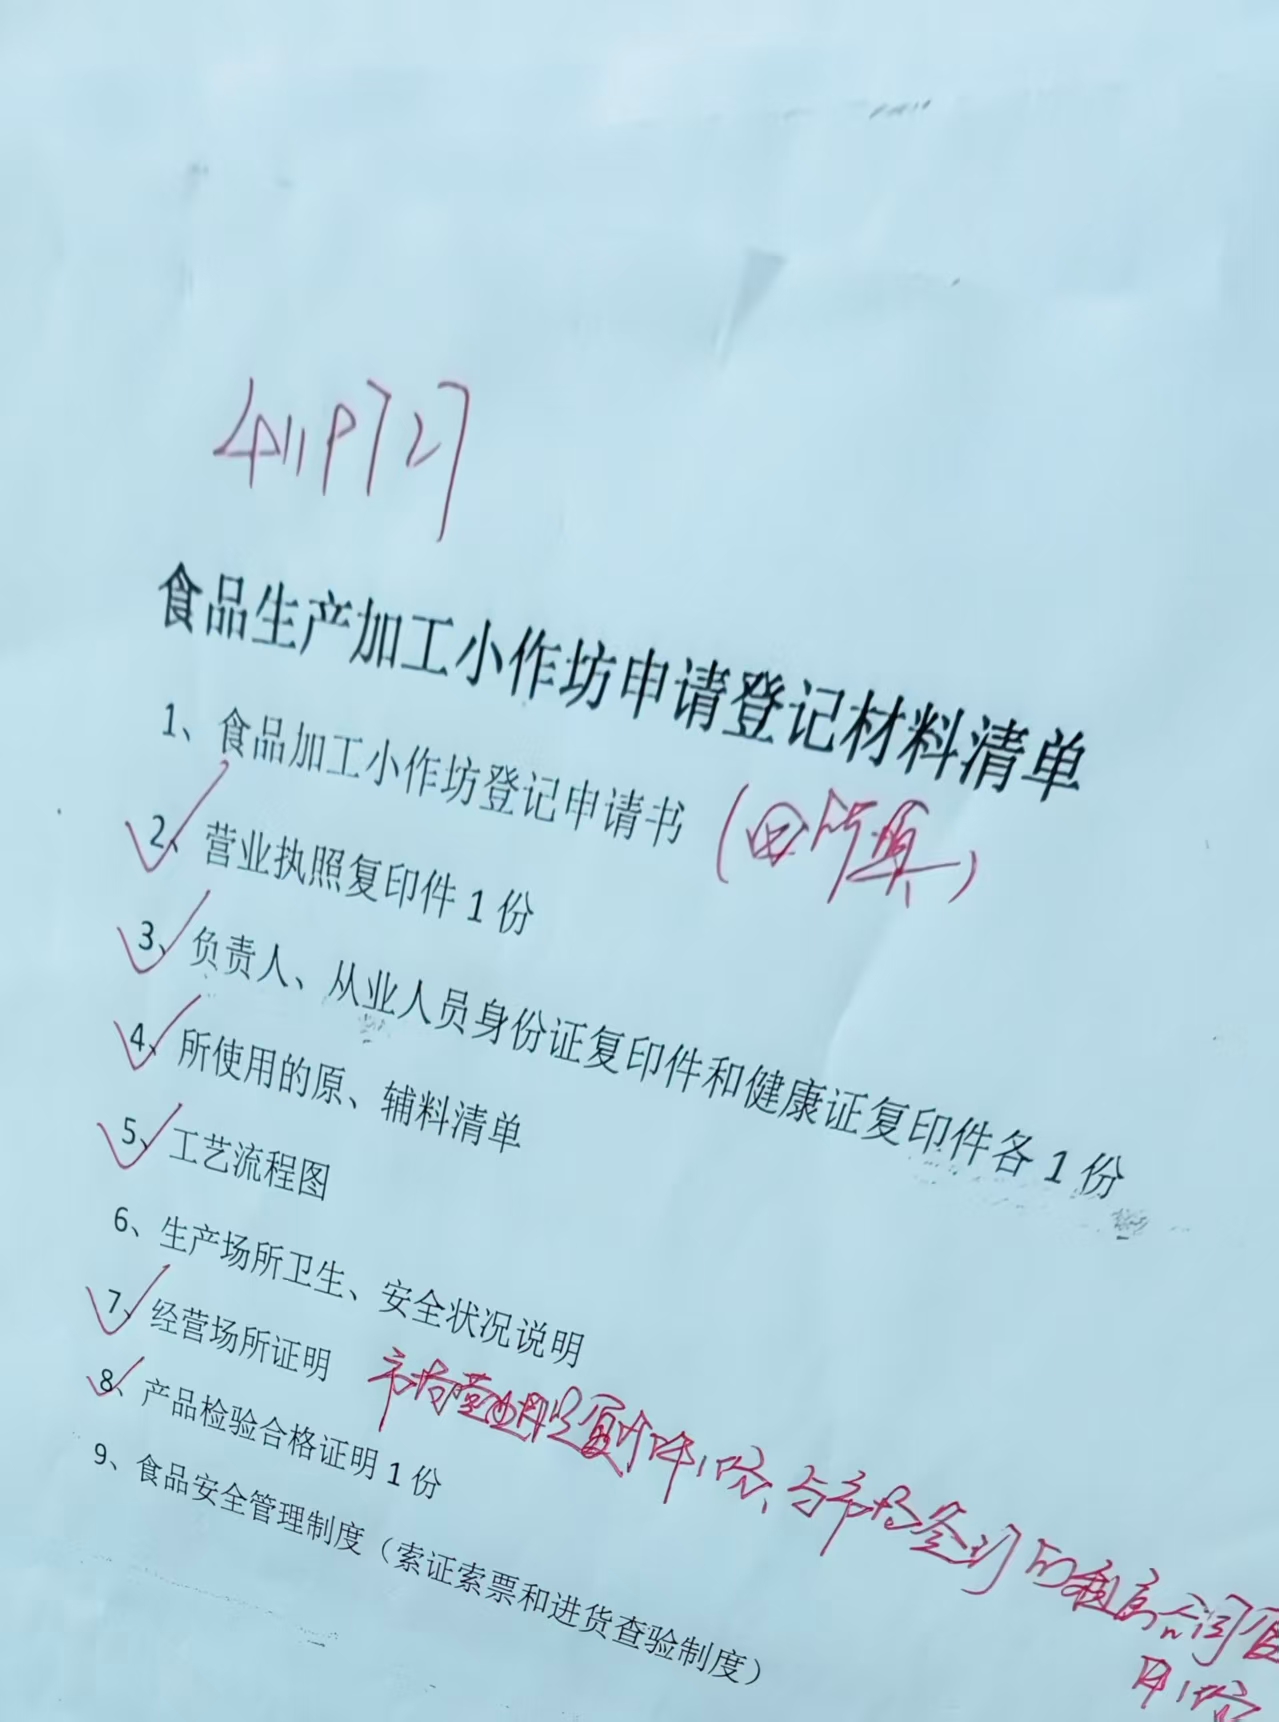 4119727
食品生产加工小作坊申请登记材料清单
1、食品加工小作坊登记申请书（回所填）
2、营业执照复印件1份
3、负责人、从业人员身份证复印件和健康证复印件各1份
4、所使用的原、辅料清单
5、工艺流程图
6、生产场所卫生、安全状况说明
7、经营场所证明 市场营业照复印件1份、与市场签订的租房合同复
印1份
8、产品检验合格证明1份
9、食品安全管理制度（索证索票和进货查验制度）